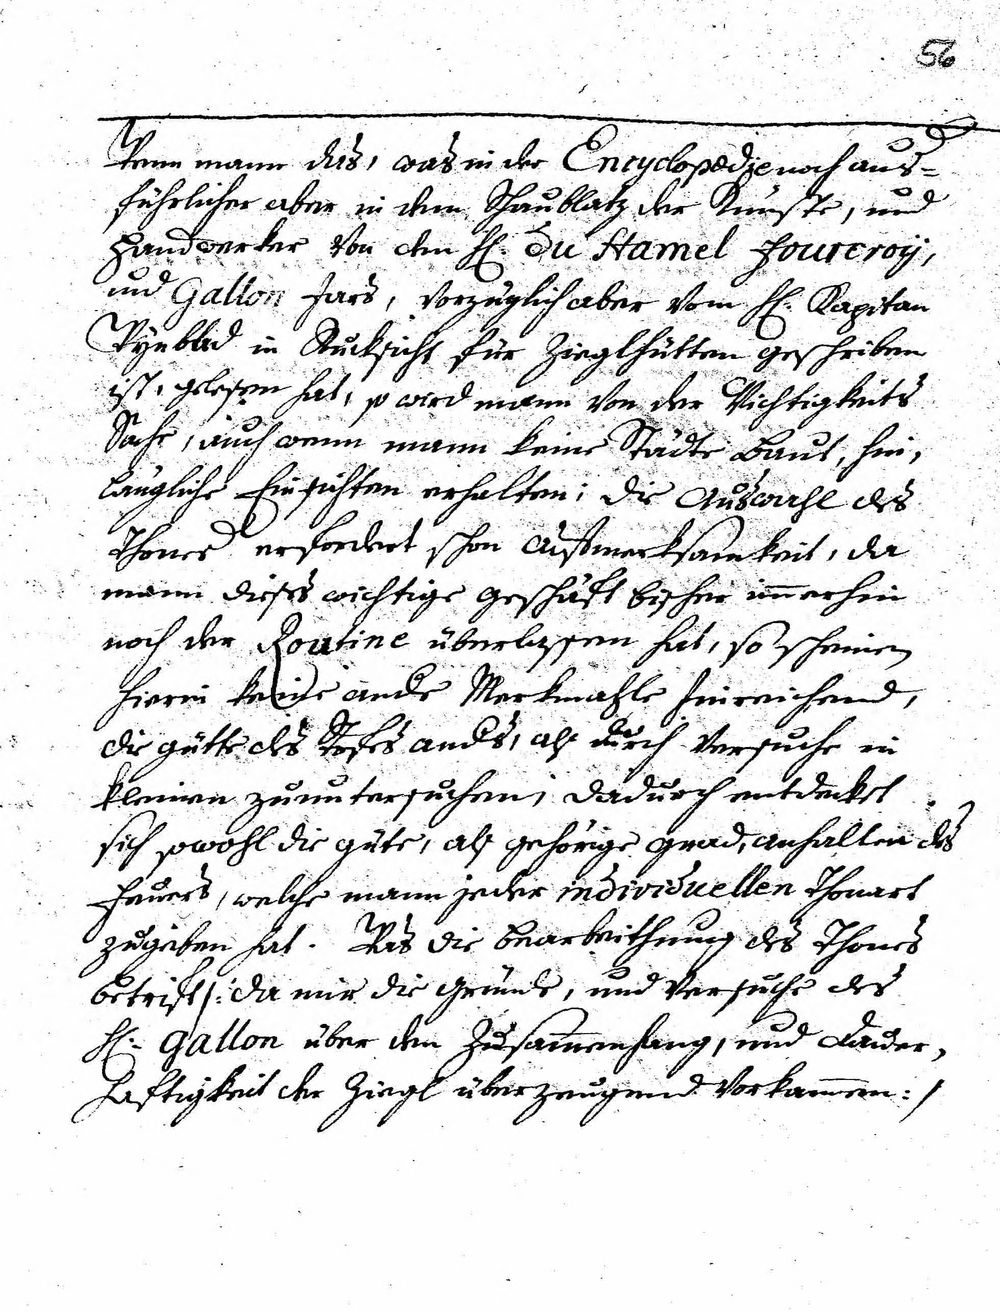 56
Wenn mann das, was in der Encyclopædie noch aus=
führlicher aber in dem Schaublatz der Künste, und
Handwerker von den H. Du Hamel Fourcroÿ,
und Gallon Jars, vorzüglich aber vom H. Kapitan
Wÿnblad in Rucksicht für Zieglhütten geschriben
ist, gelesen hat, so wird mann von der Wichtigkeits
Sache, auch wenn mann keine Städte baut, hin,
längliche Einsichten erhalten; die Auswahl des
Thones erfordert schon aufmerksamkeit, da
mann dieses wichtige geschäft bisher immerhin
noch der Routine überlassen hat, so scheinen
hierin keine ande Merkmahle hinreichend,
die gütte des ands, als durch Versuche in
kleinen zuuntersuchen, dadurch entdeckt
sich sowohl die güte, als gehörige grad, anhalten des
Feuers, welche mann jeder individuellen Thonart
zugeben hat. Was die bearbeithung des Thones
betrift /: da mir die gründe, und Versuche des
H. Gallon über den Zusammenhang, und Dauer,
haftigkeit der Ziegl überzeugend vorkammen :/